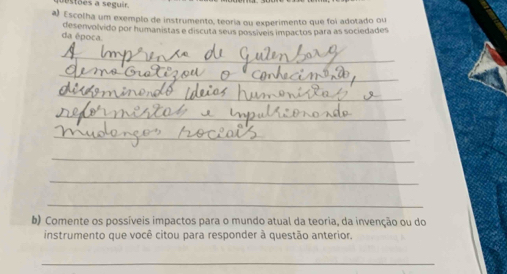 questões a seguir.
a) Escolha um exemplo de instrumento, teoria ou experimento que foi adotado ou
desenvolvido por humanistas e discuta seus possíveis impactos para as sociedades
da época.
A imprensa de Gutenbarg
democratizou o conhecimento,
disseminando ideias humanistas e
reformistas e impulsionando
mudanças sociais
b) Comente os possíveis impactos para o mundo atual da teoria, da invenção ou do
instrumento que você citou para responder à questão anterior.